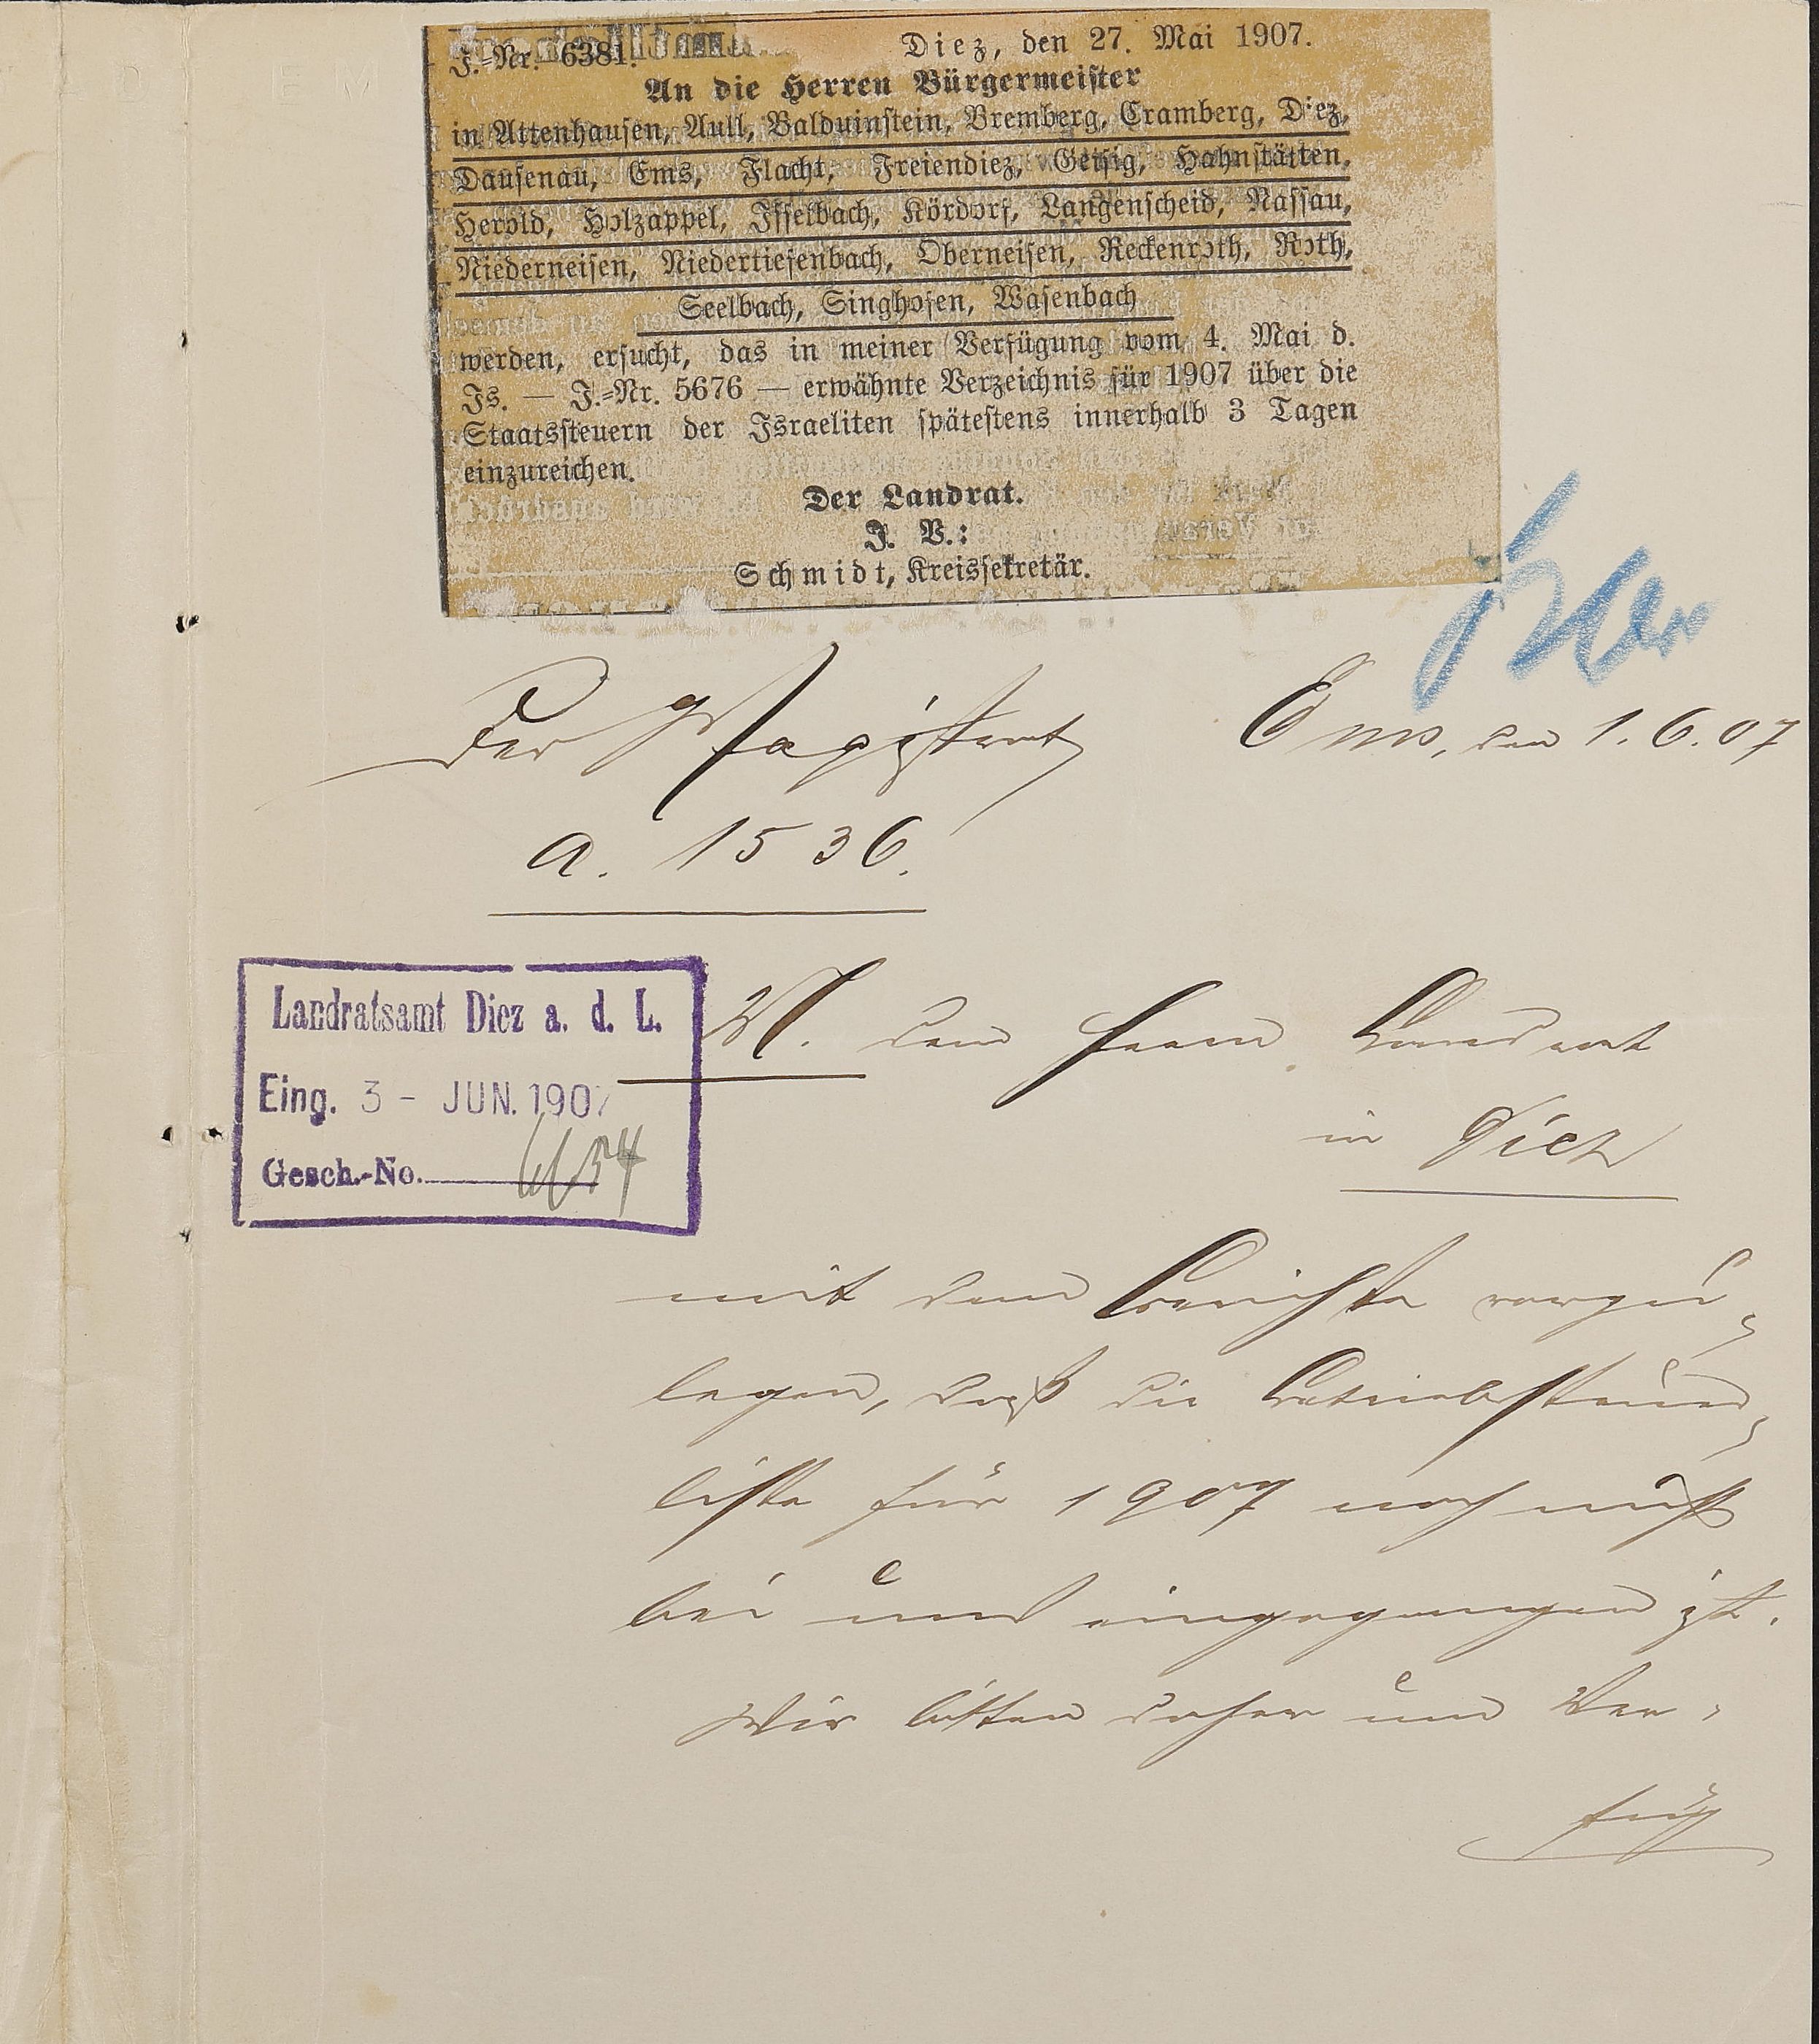 J.-Nr. 6381. Diez, den 27. Mai 1907.
An die Herren Bürgermeister
in Attenhausen, Aull, Balduinstein, Bremberg, Cramberg, Diez,
Dausenau, Ems, Flacht, Freiendiez, Geisig, Hahnstätten,
Herold, Holzappel, Isselbach, Kördorf, Langenscheid, Nassau,
Niederneisen, Niedertiefenbach, Oberneisen, Reckenroth, Roth,
Seelbach, Singhofen, Wasenbach
werden, ersucht, das in meiner Verfügung vom 4. Mai d.
Js. — J.-Nr. 5676 — erwähnte Verzeichnis für 1907 über die
Staatssteuern der Israeliten spätestens innerhalb 3 Tagen
einzureichen.
Der Landrat.
J. V.:
Schmidt, Kreissekretär.
Der Magistrat Ems, den 1.6.07
a. 1536.
Landratsamt Diez a. d. L.
Eing. 3 - JUN. 1907
Gesch.-No. 6654
W. dem Herrn Landrat
in Diez
mit dem Berichte vorzu-
legen, daß die Betriebssteuer-
liste für 1907 noch nicht
bei uns eingegangen ist.
Wir bitten daher um Ver-
füg